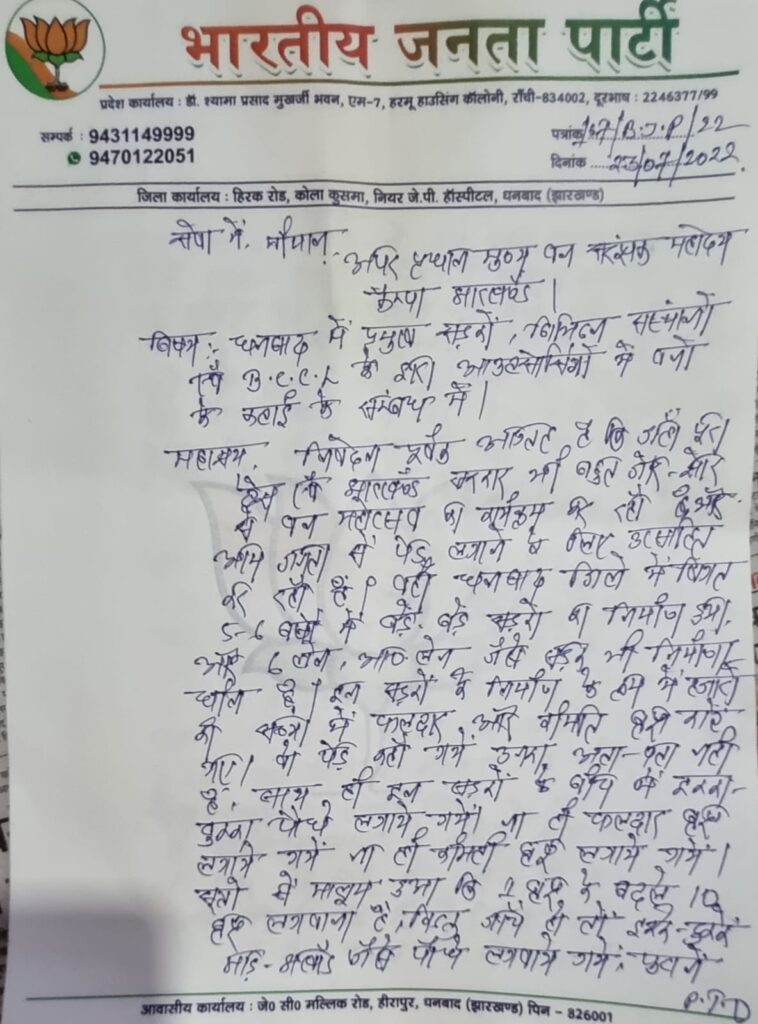 भारतीय जनता पार्टी
प्रदेश कार्यालय : डॉ. श्यामा प्रसाद मुखर्जी भवन, एम-7, हरमू हाउसिंग कॉलोनी, राँची-834002, दूरभाष : 2246377/99
सम्पर्क : 9431149999
9470122051
पत्रांक /B.J.P/22
दिनांक ....23/07/2022
जिला कार्यालय : हिरक रोड, कोला कुसमा, नियर जे.पी. हॉस्पीटल, धनबाद (झारखण्ड)
सेवा में, श्रीमान्
अपर प्रधान मुख्य वन संरक्षक महोदय
कैम्पा झारखण्ड।
विषय:- धनबाद में प्रमुख सड़कों, विभिन्न संस्थानों
एवं B.C.C.L के द्वारा आउटसोर्सिंगों में वनों
के कटाई के सम्बंध में।
महाशय, निवेदन पूर्वक कि जहाँ पूरा
देश एवं झारखण्ड सरकार भी बहुत जोर-शोर
से वन महोत्सव का कार्यक्रम कर रही है और
आम जनता से पेड़ लगाने के लिए उत्साहित
कर रही है। वहीं धनबाद जिले में विगत
5-6 वर्षों में बड़े-बड़े सड़कों का निर्माण हुआ,
और 6 लेन, आठ लेन जैसे सड़क भी निर्माणा
धीन है। इन सड़कों के निर्माण के क्रम में हजारों
की संख्या में फलदार और कीमती वृक्ष काटे
गए। वो पेड़ कहाँ गये उनका अता-पता नहीं
है, साथ ही इन सड़कों के बीच में इक्का-
दुक्का पौधे लगाये गये। ना तो फलदार वृक्ष
लगाये गये ना ही कीमती वृक्ष लगाये गये।
मालूम हुआ कि 1 वृक्ष के बदले 10
वृक्ष लगवाना है, किन्तु इक्के-दुक्के
झाड़-झंखाड़ जैसे पौधे लगवाये गये,
P.T.O
आवासीय कार्यालय : जे० सी० मल्लिक रोड, हीरापुर, धनबाद (झारखण्ड) पिन - 826001